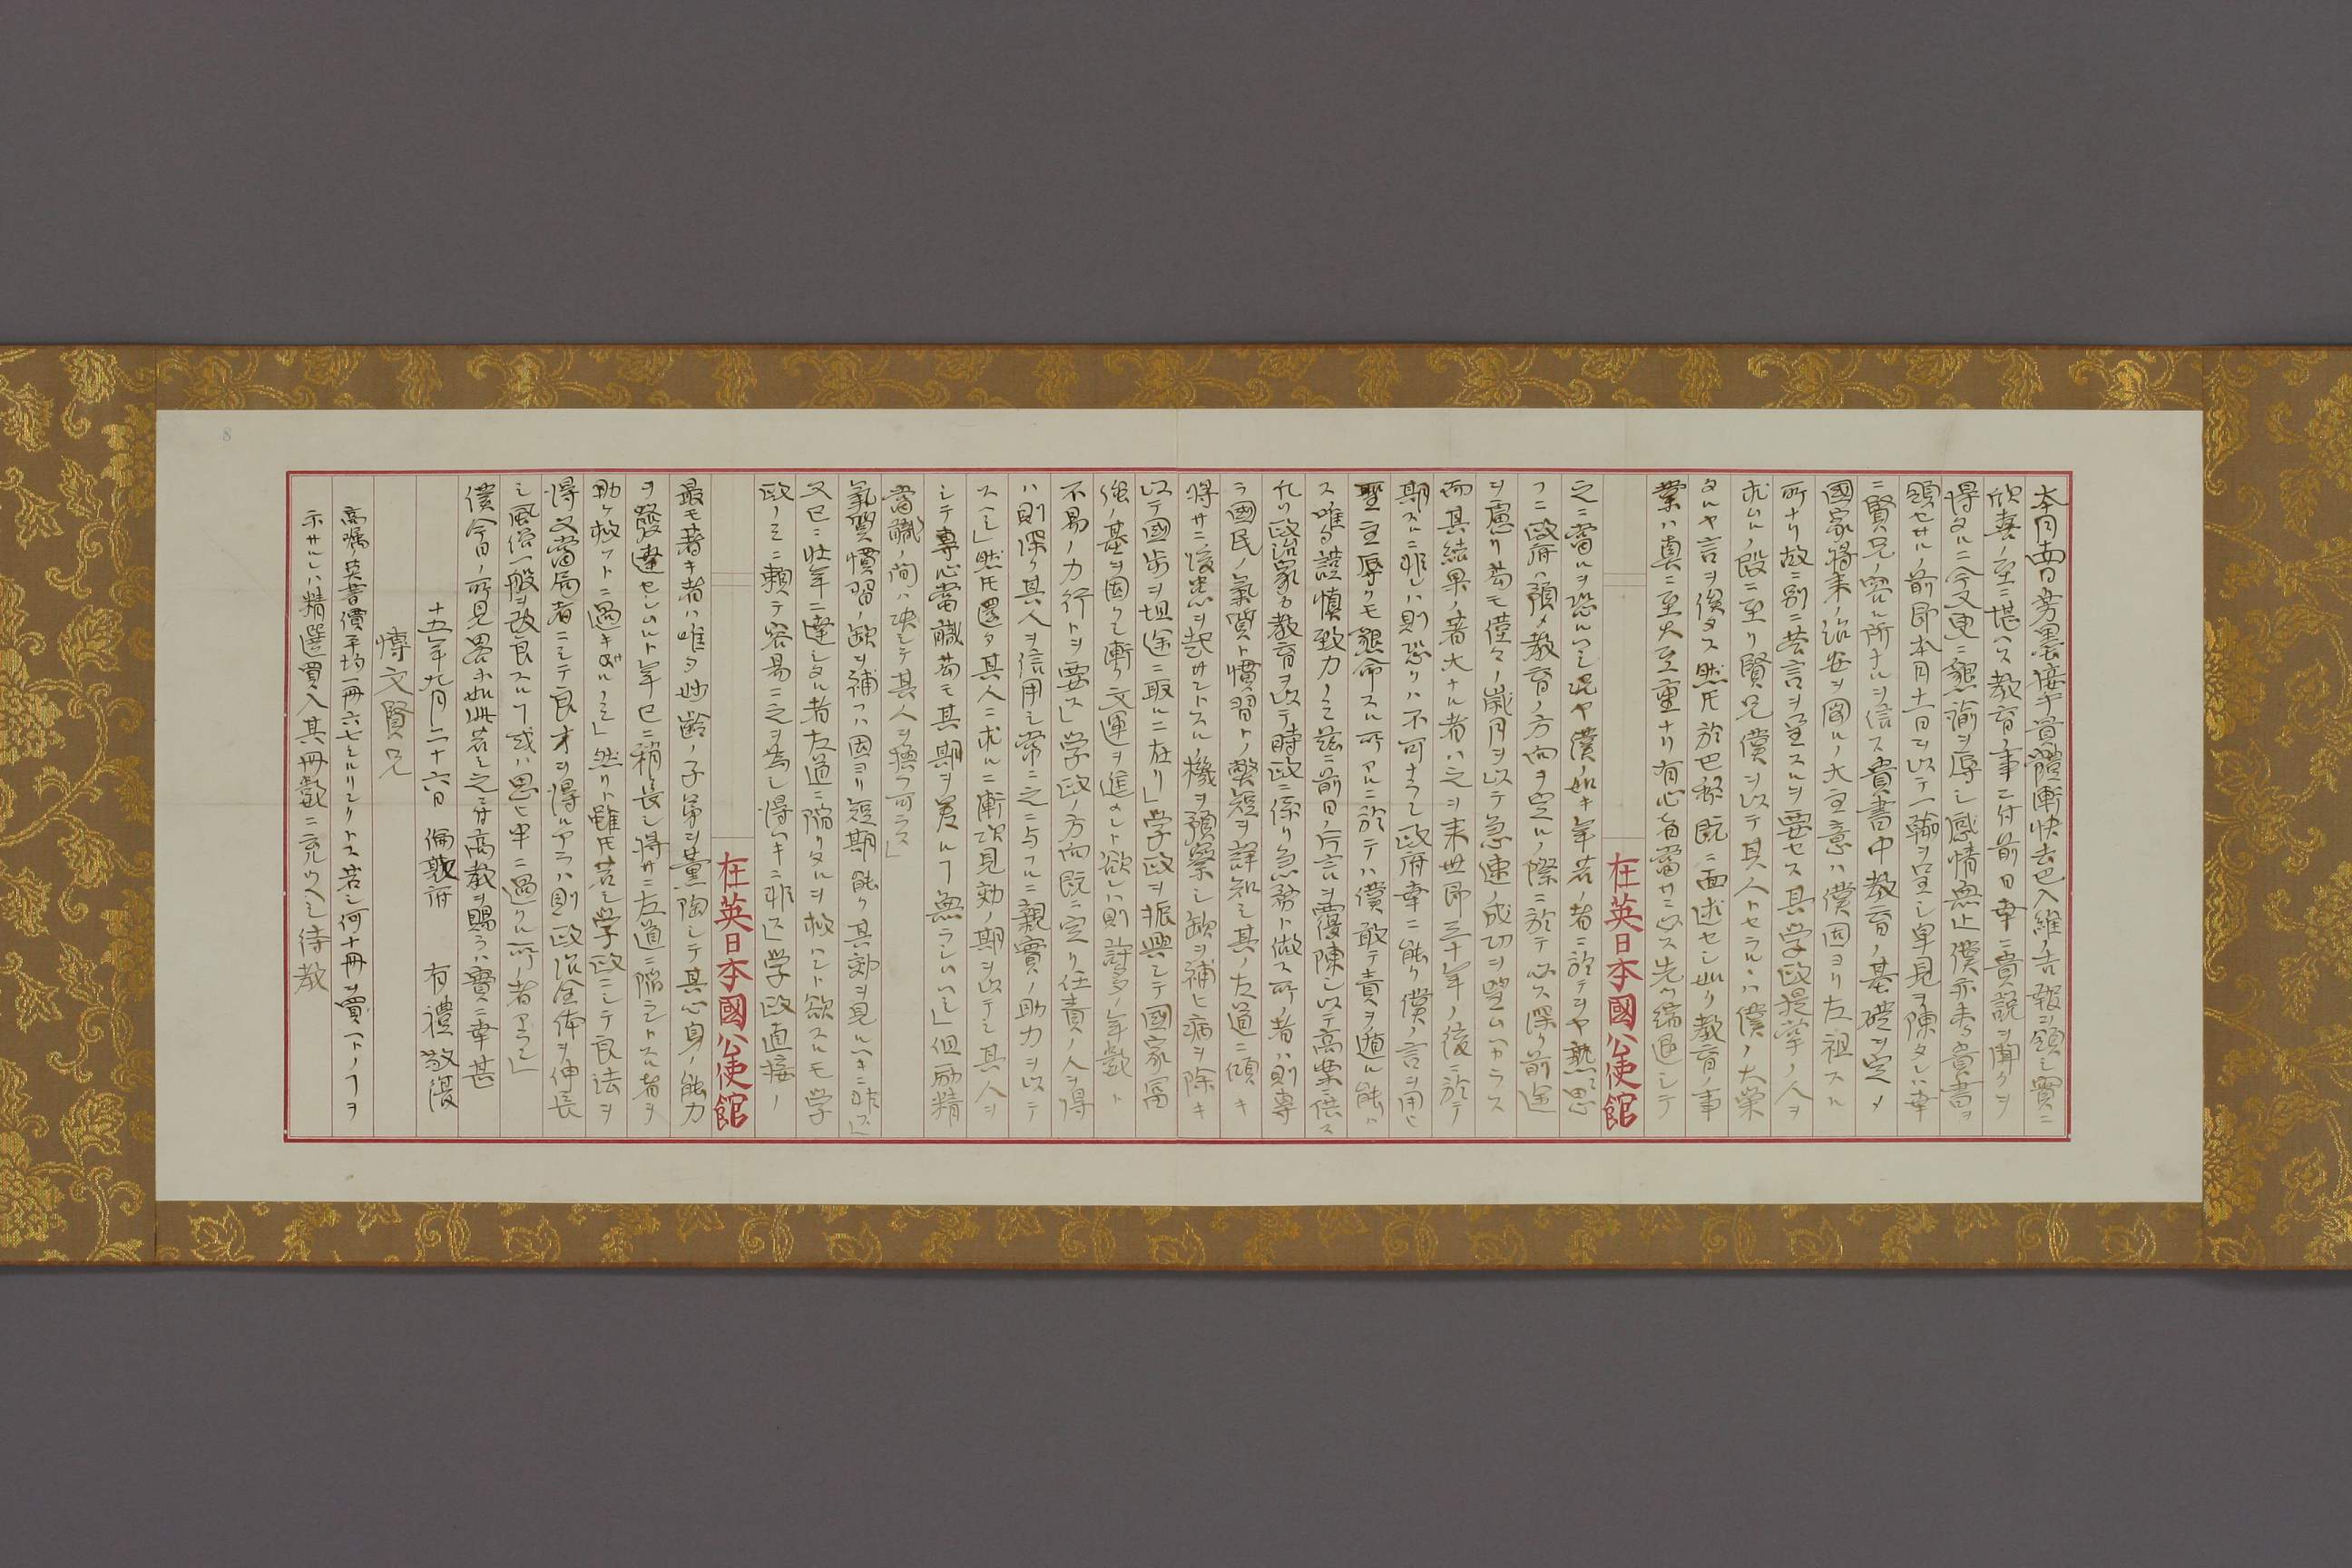 欣喜ノ至ニ堪ヘス教育ノ事ニ付前日幸ニ貴説ヲ聞クヲ
得タルニ今又更ニ懇諭ヲ辱シ感情無止僕亦未タ貴書ヲ
領セサル前即本月十一日ヲ以テ一翰ヲ呈シ卑見ヲ陳タレハ幸
ニ賢兄ノ容ル所ナルヲ信ス貴書中教育ノ基礎ヲ定メ
國家将来ノ治安ヲ圖ルノ大主意ハ僕固ヨリ左祖スル
所ナリ故ニ別ニ苦言ヲ呈スルヲ要セス其学政提掌ノ人ヲ
求ルノ段ニ至リ賢兄僕ヲ以テ其人トセラルヽハ僕ノ大榮
タルヤ言ヲ俟タス然トモ於巴黎既ニ面述セシ如ク教育ノ事
業ハ真ニ至大至重ナリ有心者當サニ必ス先ツ編退シテ
在英日本國公使館
之ニ當ルヲ恐ルヘシ况ヤ僕ノ如キ年若ノ者ニ於テヲヤ熟思
フニ政府ハ預メ教育ノ方向ヲ定ルノ際ニ於テ必ス深ク前途
ヲ慮リ苟モ僅々ノ歳月ヲ以テ急速ノ成功ヲ望ムヘカラス
而其結果ノ著大ナル者ハ之ヲ来世即三十年ノ後ニ於テ
期スルニ非レハ則恐クハ不可ナラン政府幸ニ能ク僕ノ言ヲ用ヒ
聖主辱クモ懇命スル所アルニ於テハ僕敢テ責ヲ遁ル能ハ
ス唯タ謹慎致力ノミ茲ニ前日ノ片言ヲ覆陳シ以テ高案ニ供ス
凡ソ政治家カ教育ヲ以テ時政ニ係リ急務ト做ス所ノ者ハ則専
ラ國民ノ氣質ト慣習トノ弊短ヲ詳知シ其ノ左道ニ傾キ
将サニ後患ヲ起サントスルノ機ヲ預察シ缺ヲ補ヒ病ヲ除キ
以テ國歩ヲ坦途ニ取ルニ在リ」学政ヲ振興シテ國家富
強ノ基ヲ固クシ漸ク文運ヲ進メント欲レハ則許多ノ年數ト
不易ノ力行トヲ要ス」学政ノ方向既ニ定リ任責ノ人ヲ得
ハ則深ク其人ヲ信用シ常ニ之ニ与フルニ親實ノ助力ヲ以テ
スヘシ」然トモ還タ其人ニ求ルニ漸次見効ノ期ヲ以テシ其人ヲ
シテ専心當職苟モ其期ヲ差ルヿ無ラシムヘシ」但励精
當職ノ間ハ决シテ其人ヲ換フ可ラス」
氣質慣習ノ缺ヲ補フハ固ヨリ短期能ク其効ヲ見ルヘキニ非ス」
又已ニ壮年ニ達シタル者左道ニ陥リタルヲ救ハント欲スルモ学
政ノミニ頼テ容易ニ之ヲ為シ得ヘキニ非ス」学政直接ノ
在英日本國公使館
最モ著キ者ハ唯タ妙齢ノ子弟ヲ薫陶シテ其心身ノ能力
ヲ發達セシムルト年已ニ稍長シ将サニ左道ニ陥ラントスル者ヲ
助ケ救フトニ過キザルノミ」然リト雖トモ若シ学政ニシテ良法ヲ
得又當局者ニシテ良才ヲ得ルアラハ則政治全体ヲ伸長
シ風俗一般ヲ改良スルヿ或ハ思ヒ半ニ過クル所ノ者アラン」
僕今日ノ所見畧ホ如此若シ之ニ付高教ヲ賜ラハ實ニ幸甚
十五年九月二十六日 倫敦府 有禮敬復
博文賢兄
高嘱ノ英書價平均一冊六七シルリングトス若シ何十冊ヲ買フトノヿヲ
示サルレハ精選買入其冊數ニ充ツヘシ待教